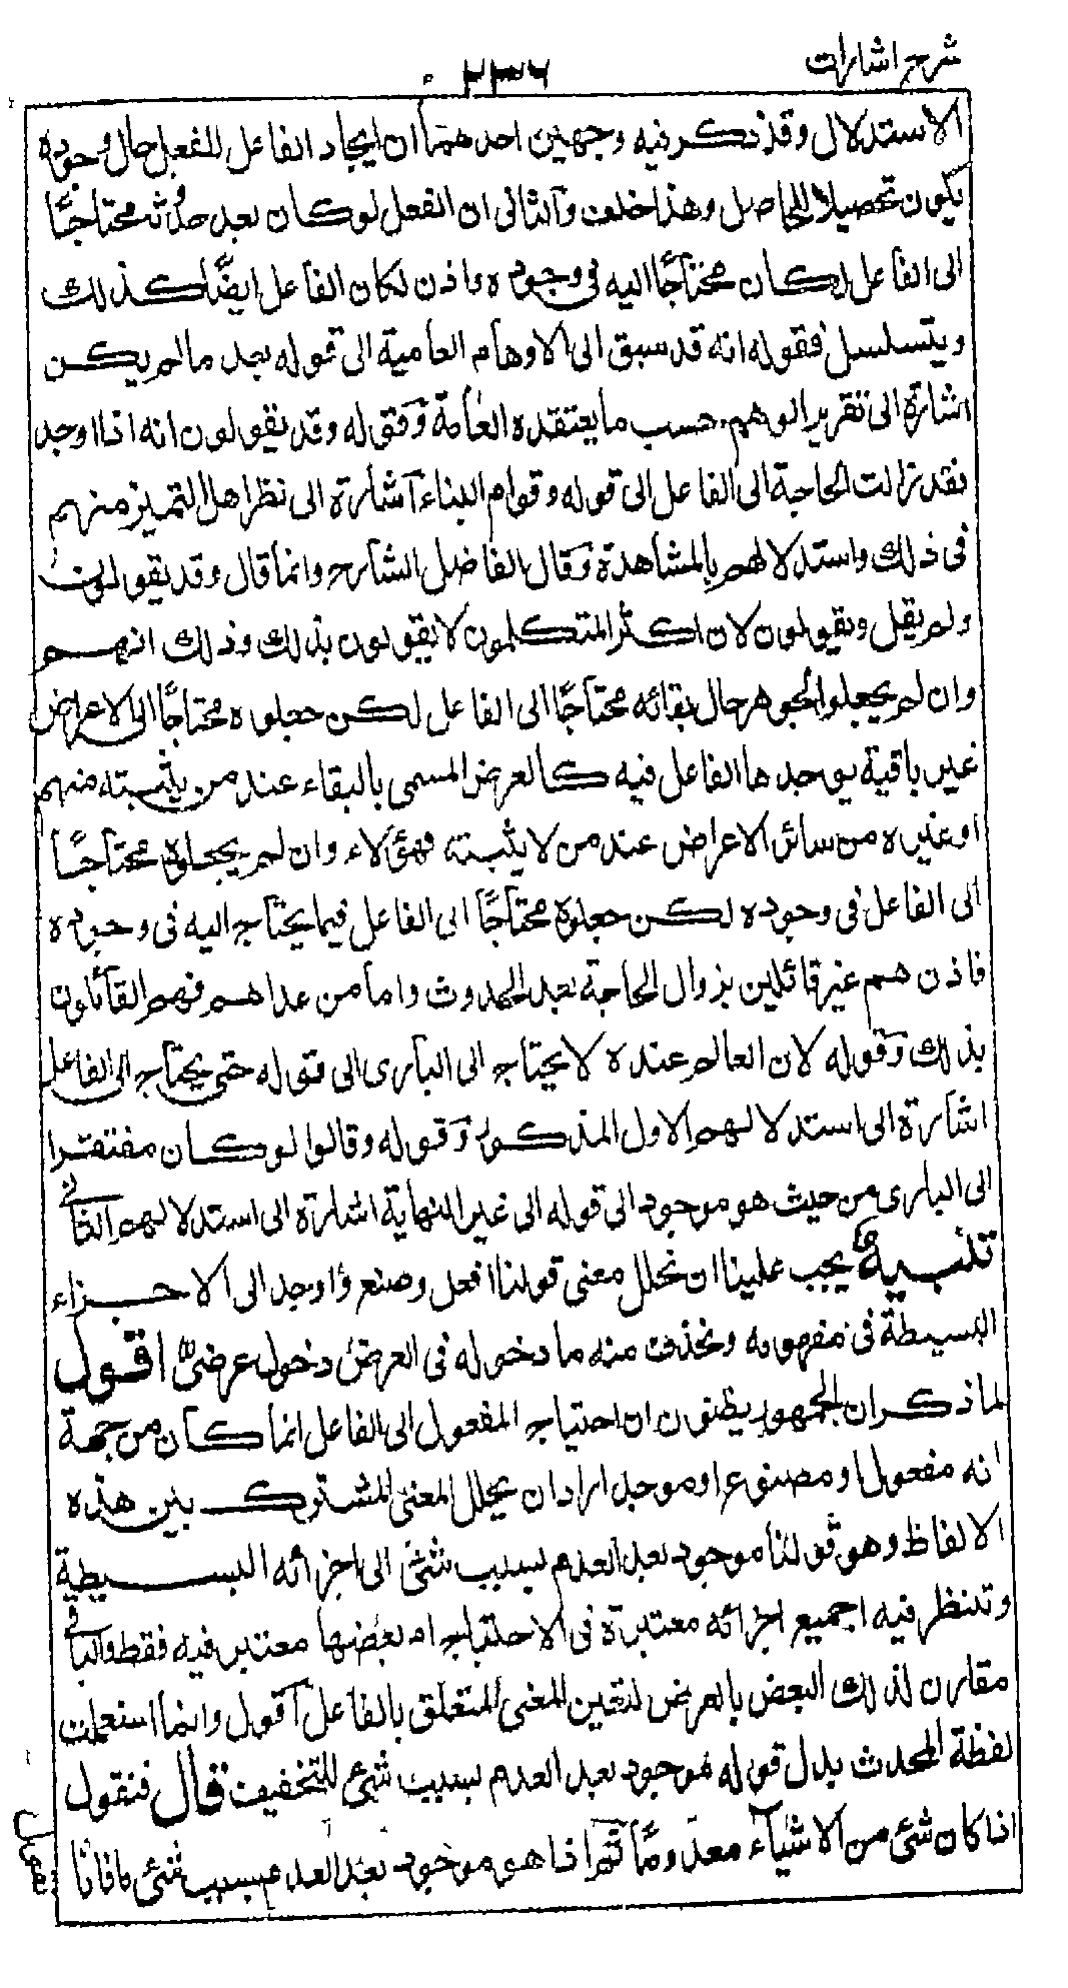 شرح اشارات
٢٣٦
الاستدلال وقد ذكر فيه وجهين احدهما ان ايجاد الفاعل للفعل حال وجوده
يكون تحصيلا للحاصل وهذا خلف والثانى ان الفعل لو كان بعد حدوثه محتاجًا
الى الفاعل لكان محتاجًا اليه فى وجوده واذن لكان الفاعل ايضًا كذلك
ويتسلسل فقوله انه قد سبق الى الاوهام العامية الى قوله بعد ما لم يكن
اشارة الى تقرير الوهم حسب ما يعتقده العامة وقوله وقد يقولون انه اذا اوجد
فقد زالت الحاجة الى الفاعل الى قوله وقوام البناء اشارة الى نظر اهل التميز منهم
فى ذلك واستدلالهم بالمشاهدة وقال الفاضل الشارح وانما قال وقد يقولون
ولم يقل ويقولون لان اكثر المتكلمون لا يقولون بذلك وذلك انهم
وان لم يجعلوا الجوهر حال بقائه محتاجًا الى الفاعل لكن جعلوه محتاجًا الى الاعراض
غير باقية يوجدها الفاعل فيه كالعرض المسمى بالبقاء عند من يثبته منهم
او غيره من سائر الاعراض عند من لا يثبته فهؤلاء وان لم يجعلوه محتاجًا
الى الفاعل فى وجوده لكن جعلوه محتاجًا الى الفاعل فيما يحتاج اليه فى وجوده
فاذن هم غير قائلين بزوال الحاجة بعد الحدوث واما من عداهم فهم القائلون
بذلك وقوله لان العالم عنده لا يحتاج الى البارى الى قوله حتى يحتاج الى الفاعل
اشارة الى استدلالهم الاول المذكور وقوله وقالوا لو كان مفتقرا
الى البارى من حيث هو موجود الى قوله الى غير النهاية اشارة الى استدلالهم الثانى
تنبيه يجب علينا ان نحلل معنى قولنا افعل وصنع واوجد الى الاجزاء
البسيطة فى مفهومه ونحذف منه ما دخوله فى العرض دخول عرضى اقول
لما ذكر ان الجمهور يظنون ان احتياج المفعول الى الفاعل انما كان من جهة
انه مفعول او مصنوع او موجد اراد ان يحلل المعنى المشترك بين هذه
الالفاظ وهو قولنا موجود بعد العدم بسبب شئ الى اجزائه البسيطة
وتنظر فيه اجميع اجزائه معتبرة فى الاحتياج ام بعضها معتبر فيه فقط والباقى
مقارن لذلك البعض بالعرض لتعين المعنى المتعلق بالفاعل اقول وانما استعملت
لفظة المحدث بدل قوله موجود بعد العدم بسبب شئ للتخفيف قال فنقول
اذا كان شئ من الاشياء معدومًا ثم اذا هو موجود بعد العدم بسبب شئ ما فانا